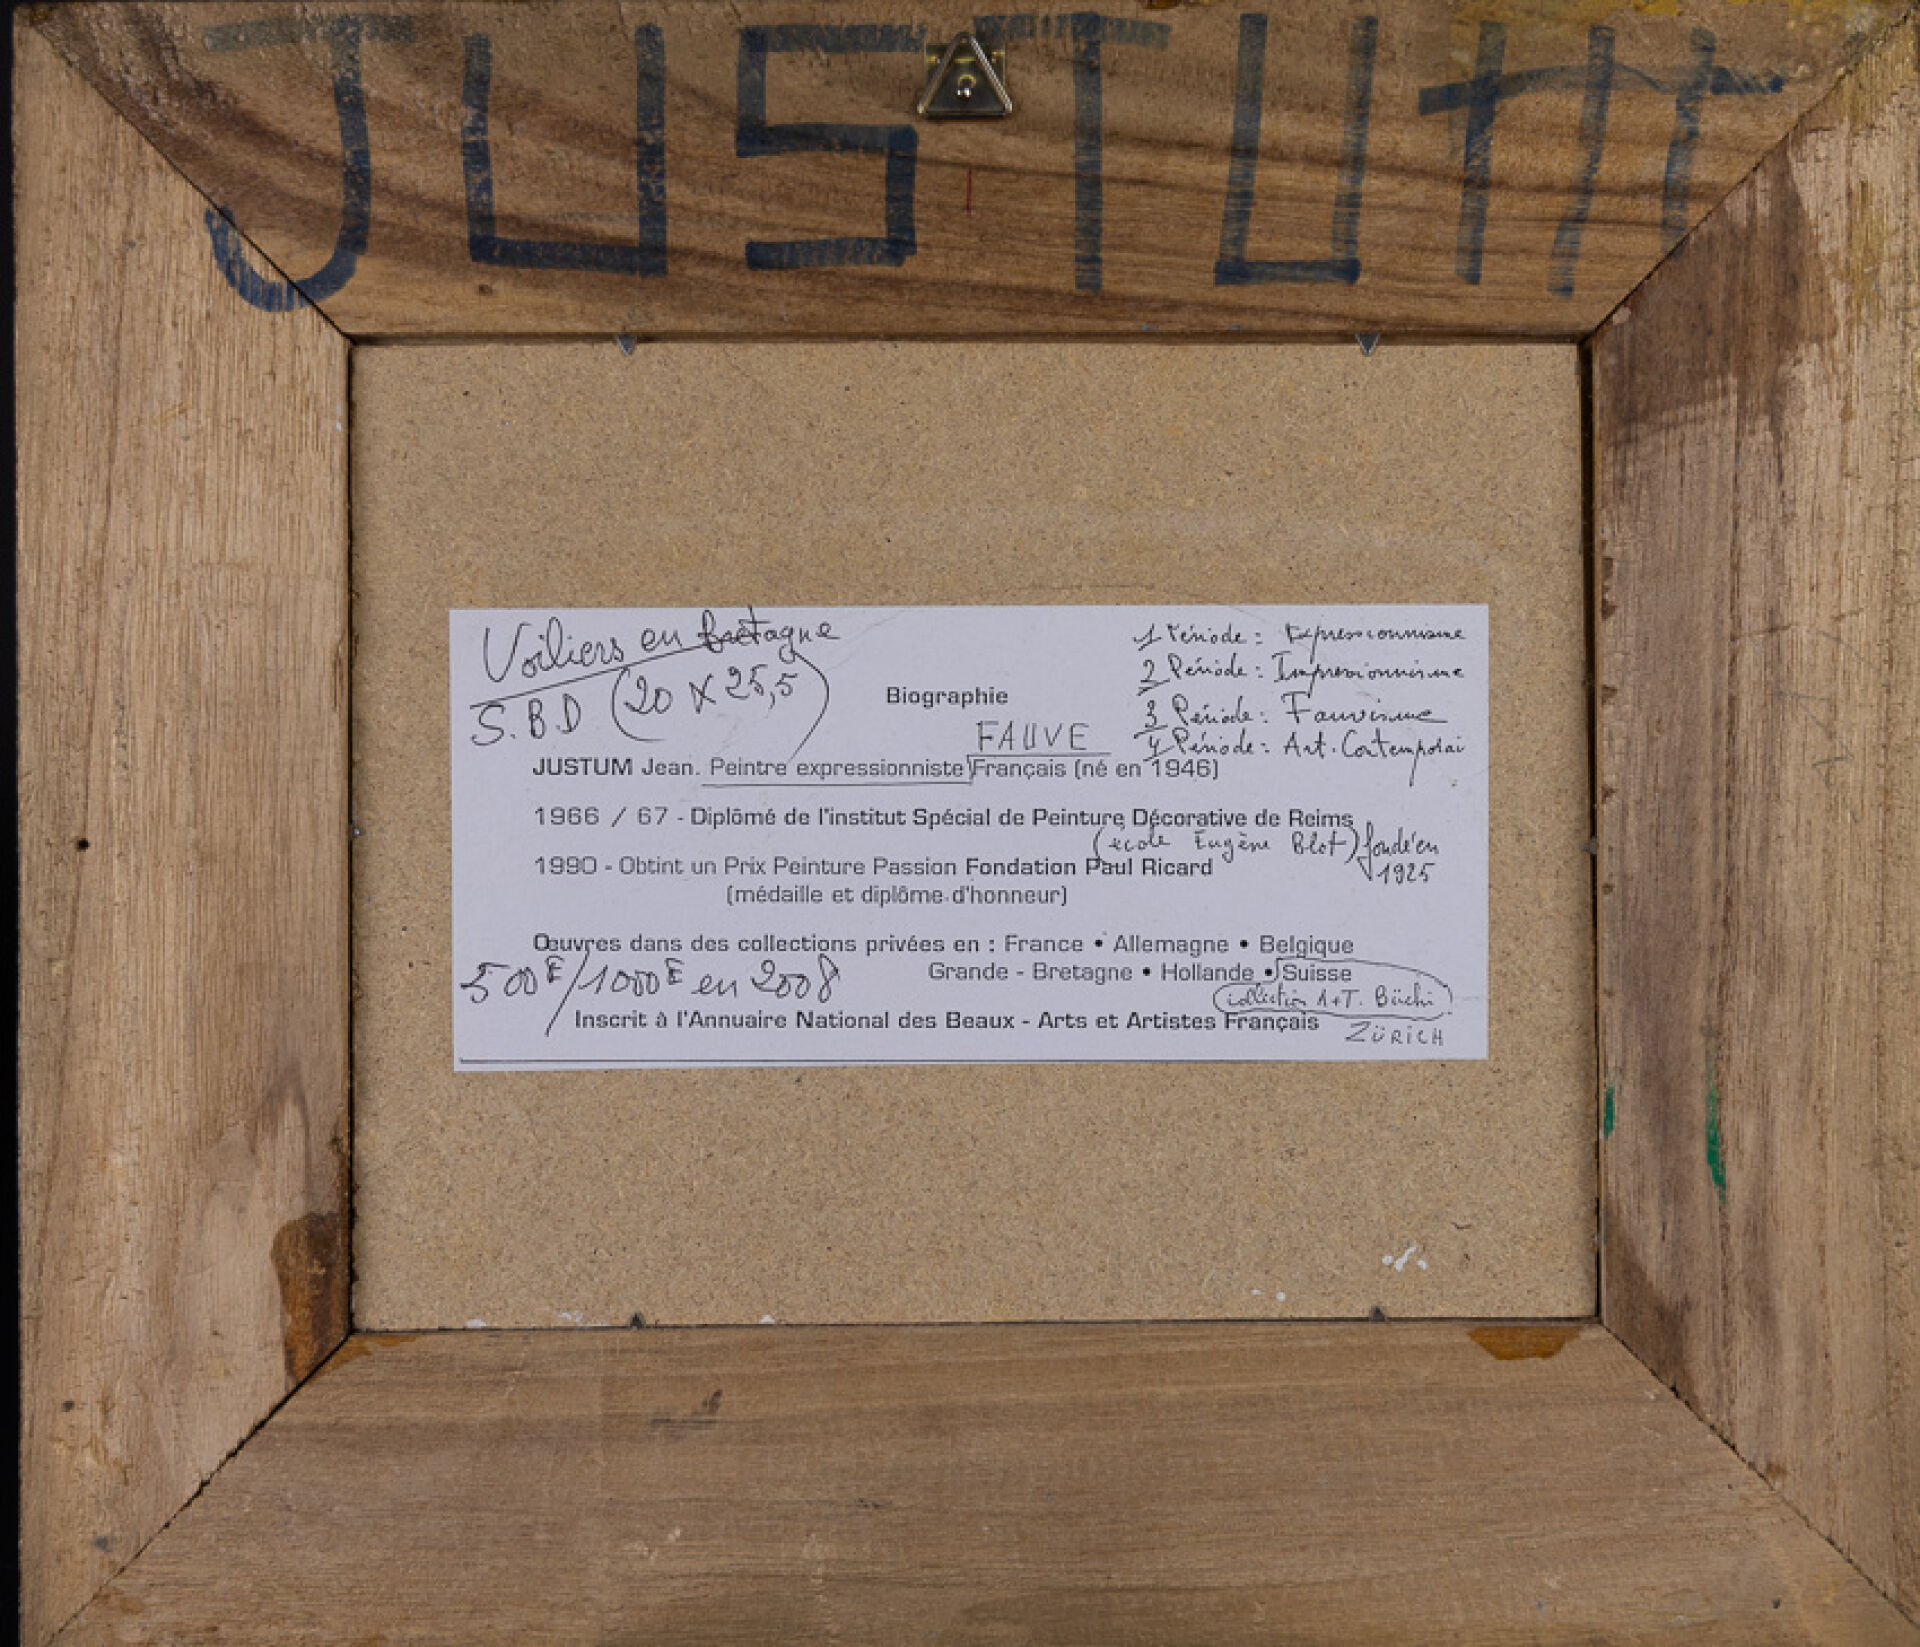 JUSTUM
Voiliers en bretagne
S.B.D (20 X 25,5)
1 Période : Expressionnisme
2 Période : Impressionnisme
3 Période : Fauvisme
4 Période : Art. Contemporai
Biographie
FAUVE
JUSTUM Jean. Peintre expressionniste Français (né en 1946)
1966 / 67 - Diplômé de l'institut Spécial de Peinture Décorative de Reims
(école Eugène Blot) fondé en
1925
1990 - Obtint un Prix Peinture Passion Fondation Paul Ricard
(médaille et diplôme d'honneur)
Œuvres dans des collections privées en : France • Allemagne • Belgique
Grande - Bretagne • Hollande • Suisse
500E/1000E en 2008
collection 1+T. Büchi
Inscrit à l'Annuaire National des Beaux - Arts et Artistes Français
ZÜRICH